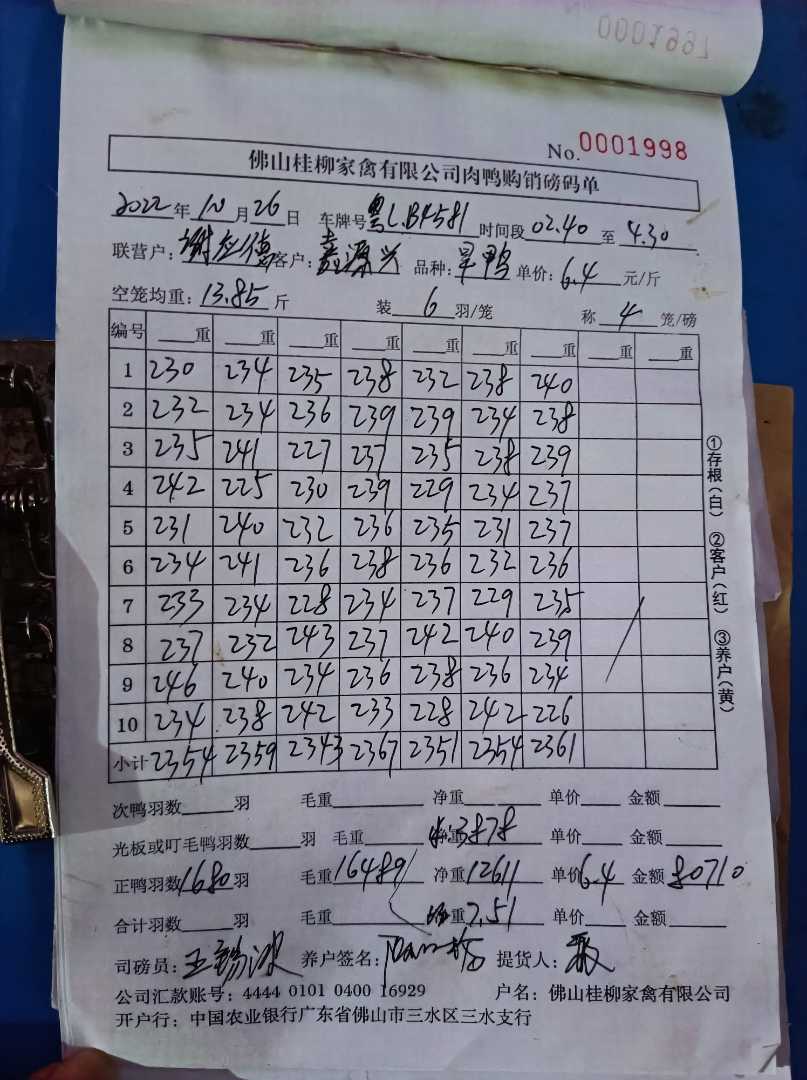 0001997
No. 0001998
佛山桂柳家禽有限公司肉鸭购销磅码单
2022年10月26日 车牌号粤L.B4581 时间段02.40至4.30
联营户:谢应德 客户:鑫源兴 品种:旱鸭 单价:6.4元/斤
空笼均重:13.85斤 装6羽/笼 称4笼/磅
编号 重 重 重 重 重 重 重 重 重
1 230 234 235 238 232 238 240
2 232 234 236 239 239 234 238
3 235 241 227 237 235 238 239
4 242 225 230 239 229 234 237
5 231 240 232 236 235 231 237
6 234 241 236 238 236 232 236
7 233 234 228 234 237 229 235
8 237 232 243 237 242 240 239
9 246 240 234 236 238 236 234
10 234 238 242 233 228 242 226
小计 2354 2359 2343 2367 2351 2354 2361
①存根(白) ②客户(红) ③养户(黄)
次鸭羽数 羽 毛重 净重 单价 金额
光板或叮毛鸭羽数 羽 毛重 3878 单价 金额
正鸭羽数1680羽 毛重16489 净重12611 单价6.4 金额80710
合计羽数 羽 毛重 重7.51 单价 金额
司磅员:王 养户签名: 提货人:
公司汇款账号:4444 0101 0400 16929 户名:佛山桂柳家禽有限公司
开户行:中国农业银行广东省佛山市三水区三水支行